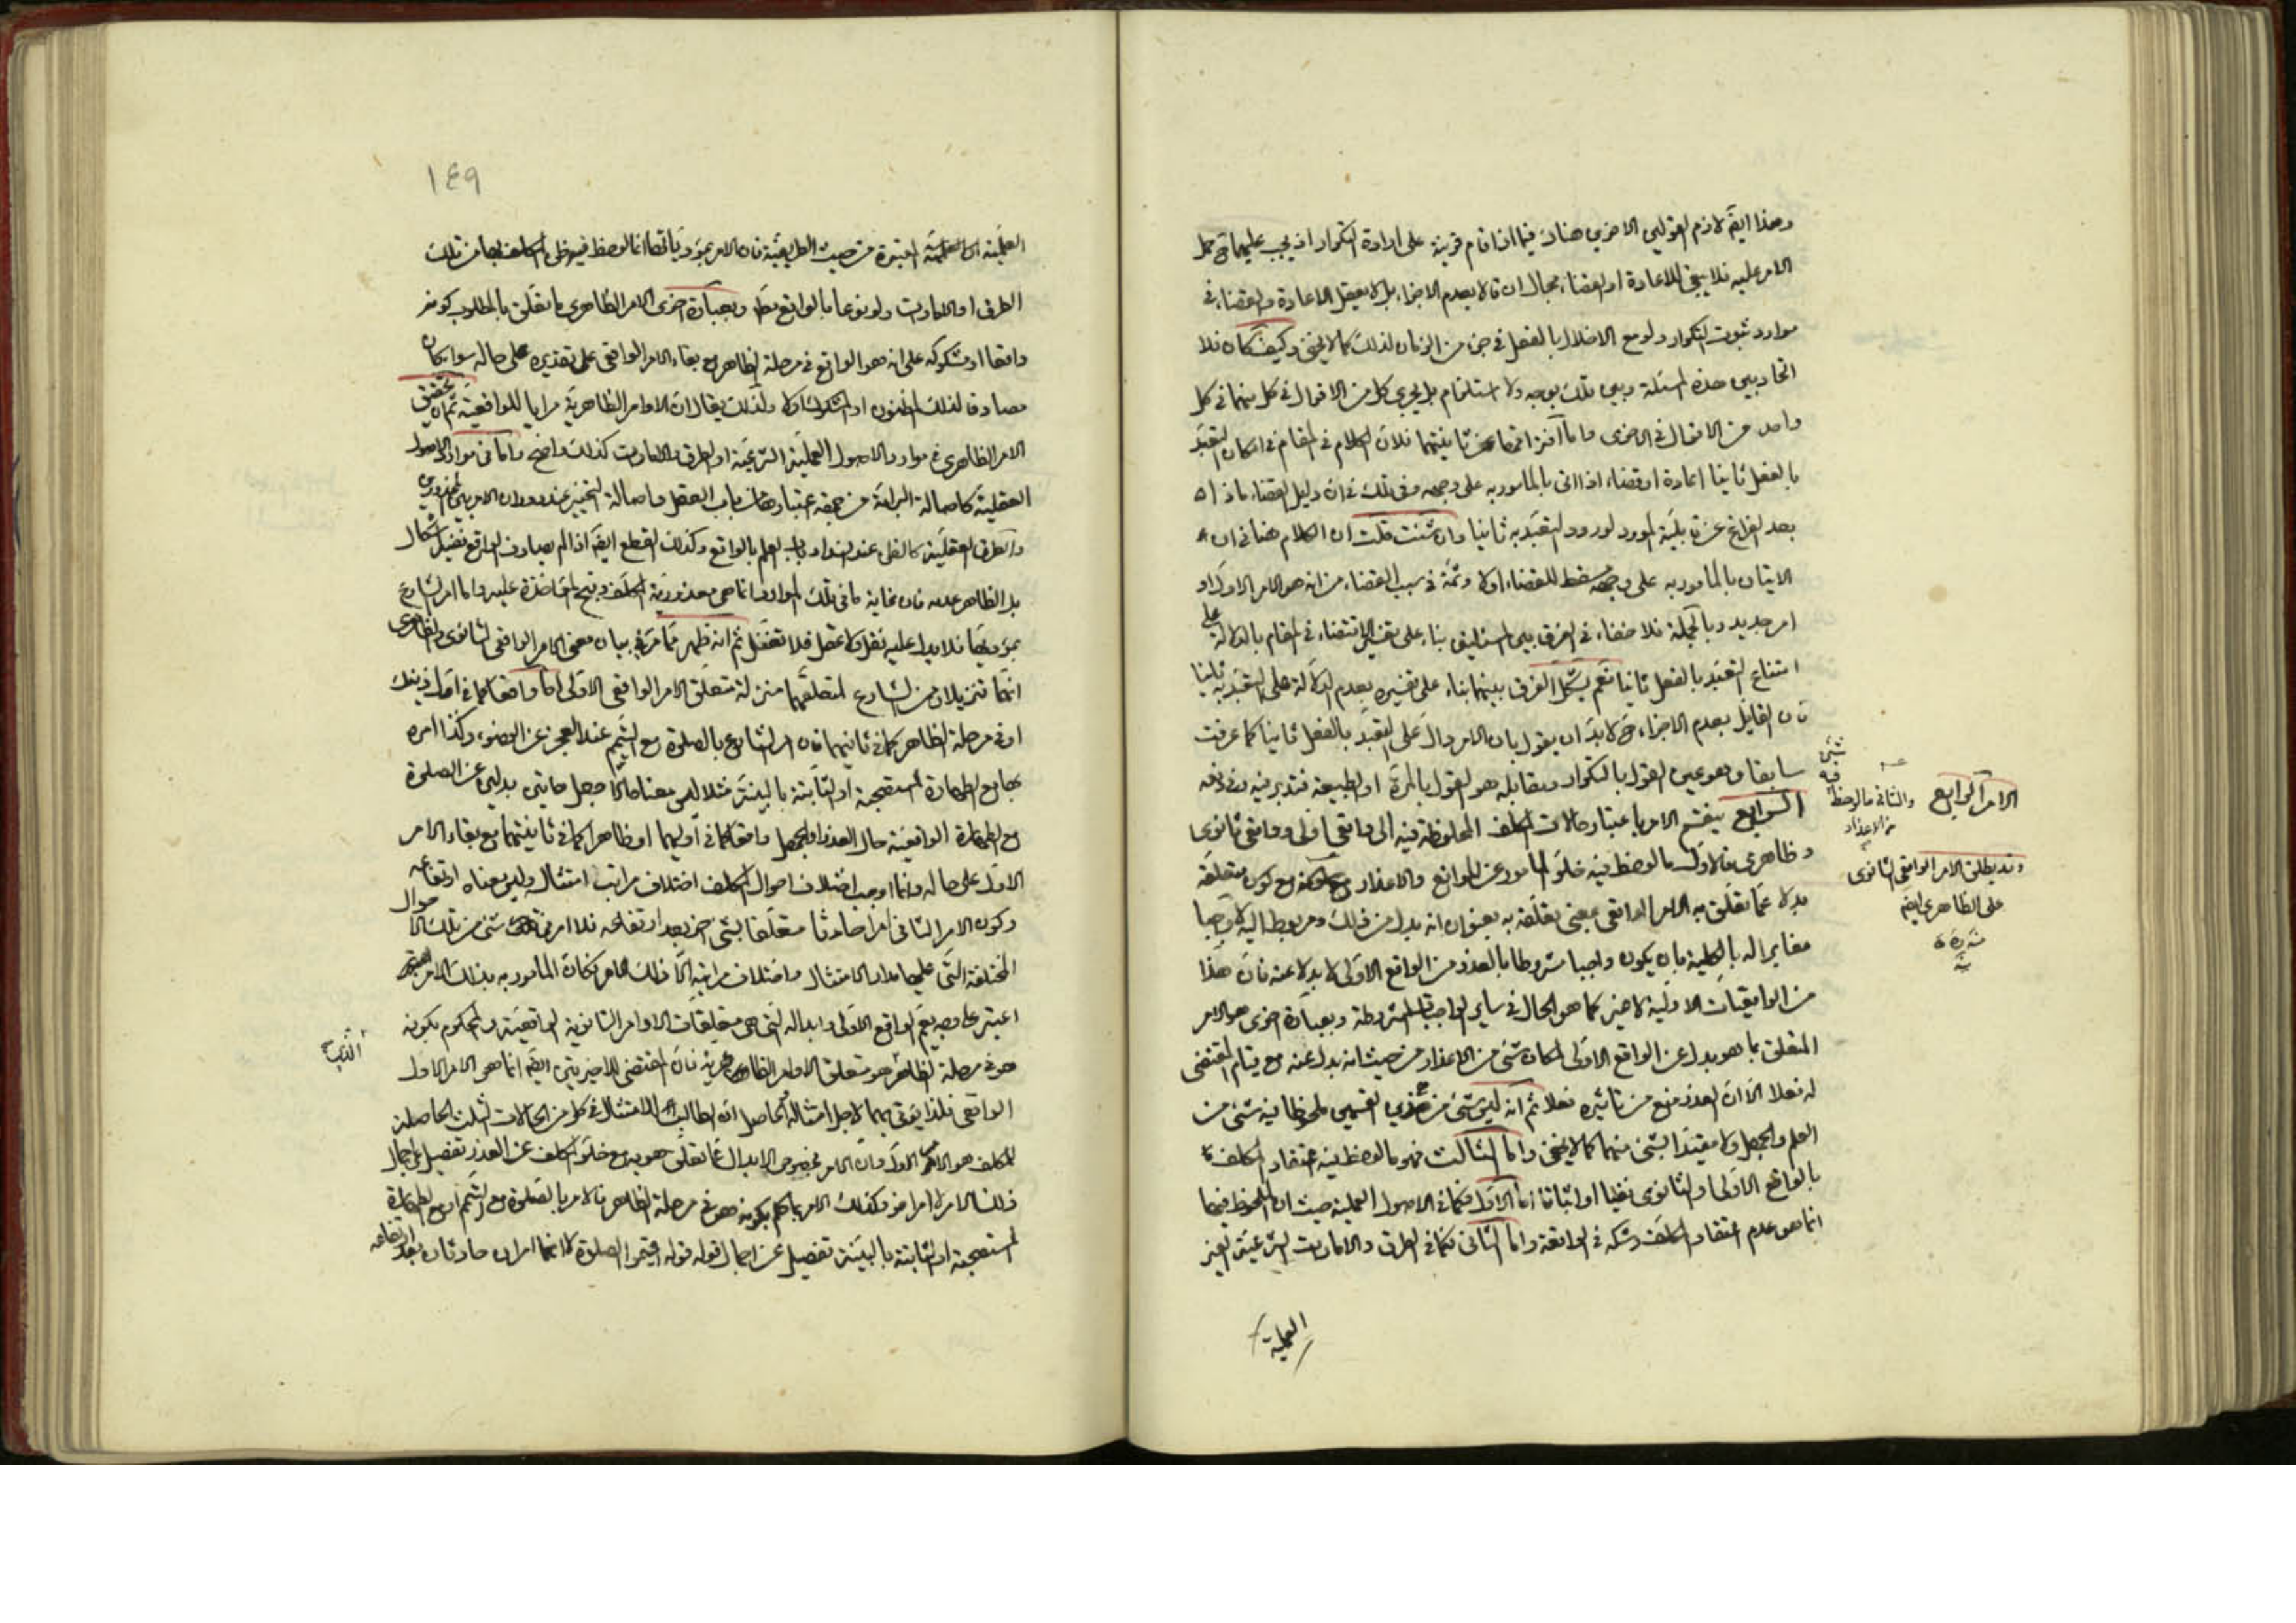 وهذا ايضَ لازم القولين الاخرين هناك فيما اذا قام قرينة على ارادة التكرار اذ يجب عليهما ح حمل
الامر عليه فلا يبقى للاعادة او القضاء مجال ان قالا بعدم الاجزاء بل لا يعقل الاعادة والقضاء في
موارد ثبوت التكرار ولو مع الاخلال بالفعل في جزء من الزمان لذلك كما لا يخفى وكيف كان فلا
اتحاد بين هذه المسئلة وبين تلك بوجه ولا استلزام بل يجري كل من الاقوال في كل منهما في كل
واحد من الاقوال في الاخرى واما افتراقها عن ثانيتهما فلان الكلام في المقام في امكان التعبد
بالفعل ثانيا اعادة او قضاء اذا اتى بالمأمور به على وجهه وفي تلك في ان دليل القضاء ماذا
بعد الفراغ عن قابلية المورد لورود التعبد به ثانيا وان شئت قلت ان الكلام هنا في ان
الاتيان بالمأمور به على وجهه مسقط للقضاء اولا وثمة في سبب القضاء من انه هو الامر الاول او
امر جديد وبالجملة فلا خفاء في الفرق بين المسئلتين بناء على تفسير الاقتضاء في المقام بالدلالة على
امتناع التعبد بالفعل ثانيا نعم يشكل الفرق بينهما بناء على تفسيره بعدم الدلالة على التعبد به ثانيا
فان القائل بعدم الاجزاء ح لا بد ان يقول بان الامر دال على التعبد بالفعل ثانيا كما عرفت
سابقا وهو عين القول بالتكرار ومقابله هو القول بالمرة او الطبيعة فتدبر فيه وفي دفعه
الرابع ينقسم الامر باعتبار حالات المكلف الملحوظة فيه الى واقعي اولى وواقعي ثانوي
وظاهري فالاول ما لوحظ فيه خلو المأمور عن الموانع والاعذار مع كون متعلقه
بدلا عما تعلق به الامر الواقعي بمعنى تعلقه به بعنوان انه بدل من ذلك ومربوط اليه لا واجبا
مغايرا له بالكلية بان يكون واجبا مشروطا بالعذر من الواقع الاولى لا بدلا عنه فان هذا
من الواقعيات الاولية لا غير كما هو الحال في ساير الواجبات المشروطة وبعبارة اخرى هو الامر
المتعلق بما هو بدل عن الواقع الاولى لمكان شئ من الاعذار من حيث انه بدل عنه مع قيام المقتضى
له فعلا الا ان العذر منع من تاثيره فعلا ثم انه ليس شئ من هذين القسمين ملحوظا فيه شئ من
العلم والجهل ولا مقيدا بشئ منهما كما لا يخفى واما الثالث فهو ما لوحظ فيه اعتقاد المكلف
بالواقع الاولى او الثانوي نفيا او اثباتا اما الاول فكما في الاصول العملية حيث ان الملحوظ فيها
انما هو عدم اعتقاد المكلف وشكه في الواقعة واما الثاني فكما في الطرق والامارات الشرعية الغير
العلمية
الامر الرابع
والثاني ما لوحظ
فيه
شئ
من الاعذار
وقد يطلق الامر الواقعي الثانوي
على الظاهري ايضا
١٤٩
العلمية المعتبرة من حيث الطريقية فان الامر بمؤدياتها انما لوحظ فيه ظن المكلف بها من تلك
الطرق او الامارات ولو نوعا بالواقع وبعبارة اخرى الامر الظاهري ما تعلق بالمطلوب كونه
واقعا او مشكوكه على انه هو الواقع في مرحلة الظاهر مع بقاء الامر الواقعي على تقديره على حاله سواء كان
مصادفا لذلك المظنون او المشكوك اولا ولذلك يقال ان الاوامر الظاهرية مرايا للواقعية ثم ان تحقق
الامر الظاهري في موارد الاصول العملية الشرعية او الطرق والامارات كذلك واضح واما في موارد الاصول
العقلية كاصالة البراءة من جهة اعتبارها من باب العقل واصالة التخيير عند دوران الامر بين المحذورين
والطرق العقلية كالظن عند انسداد باب العلم بالواقع وكذلك القطع ايضا اذا لم يصادف الواقع ففيه اشكال
بل الظاهر عدمه فان غاية ما في تلك الموارد انما هي معذورية المكلف وقبح المؤاخذة عليه واما امر الشارع
بمؤديها فلا يدل عليه نقل ولا عقل فلا تغفل ثم انه ظهر مما مر في بيان معنى الامر الواقعي الثانوي والظاهري
انهما تنزيلان من الشارع لمتعلقهما منزلة متعلق الامر الواقعي الاولى اما واقعا كما في اول ذينك
او في مرحلة الظاهر كما في ثانيهما فان امر الشارع بالصلوة مع التيمم عند العجز عن الوضوء وكذا امره
بها مع الطهارة المستصحبة او الثابتة بالبينة مثلا ليس معناهما الا جعل هاتين بدلين عن الصلوة
مع الطهارة الواقعية حال العذر او الجهل واقعا كما في اوليهما او ظاهرا كما في ثانيتهما مع بقاء الامر
الاول على حاله وانما اوجب اختلاف احوال المكلف اختلاف مراتب امتثاله وليس معناه ارتفاعه
وكون الامر الثاني امرا حادثا متعلقا بشئ اخر بعد ارتفاعه فلا امر في شئ من تلك الاحوال
المختلفة التي عليها مدار الامتثال واختلاف مراتبه الا ذلك الامر فكان المأمور به بذلك الامر
اعتبر على وجه يعم الواقع الاولى وابداله التي هي متعلقات الاوامر الثانوية الواقعية والمحكوم بكونه
هو في مرحلة الظاهر هو متعلق الاوامر الظاهرية فان المقتضى للاخيرتين ايضا انما هو الامر الاول
الواقعي فلذا يؤتى بهما لاجل امتثاله والحاصل ان الطالب للامتثال في كل من الحالات الثلث الحاصلة
للمكلف هو الامر الاول وان الامر بخصوص الابدال عما تعلق هو به مع خلو المكلف عن العذر تفصيل لاجمال
ذلك الامر لا امر اخر وكذلك الامر بما حكم بكونه هو في مرحلة الظاهر فالامر بالصلوة مع التيمم او مع الطهارة
المستصحبة او الثابتة بالبينة تفصيل عن اجمال قوله اقيموا الصلوة لا انهما امران حادثان بعد ارتفاعه